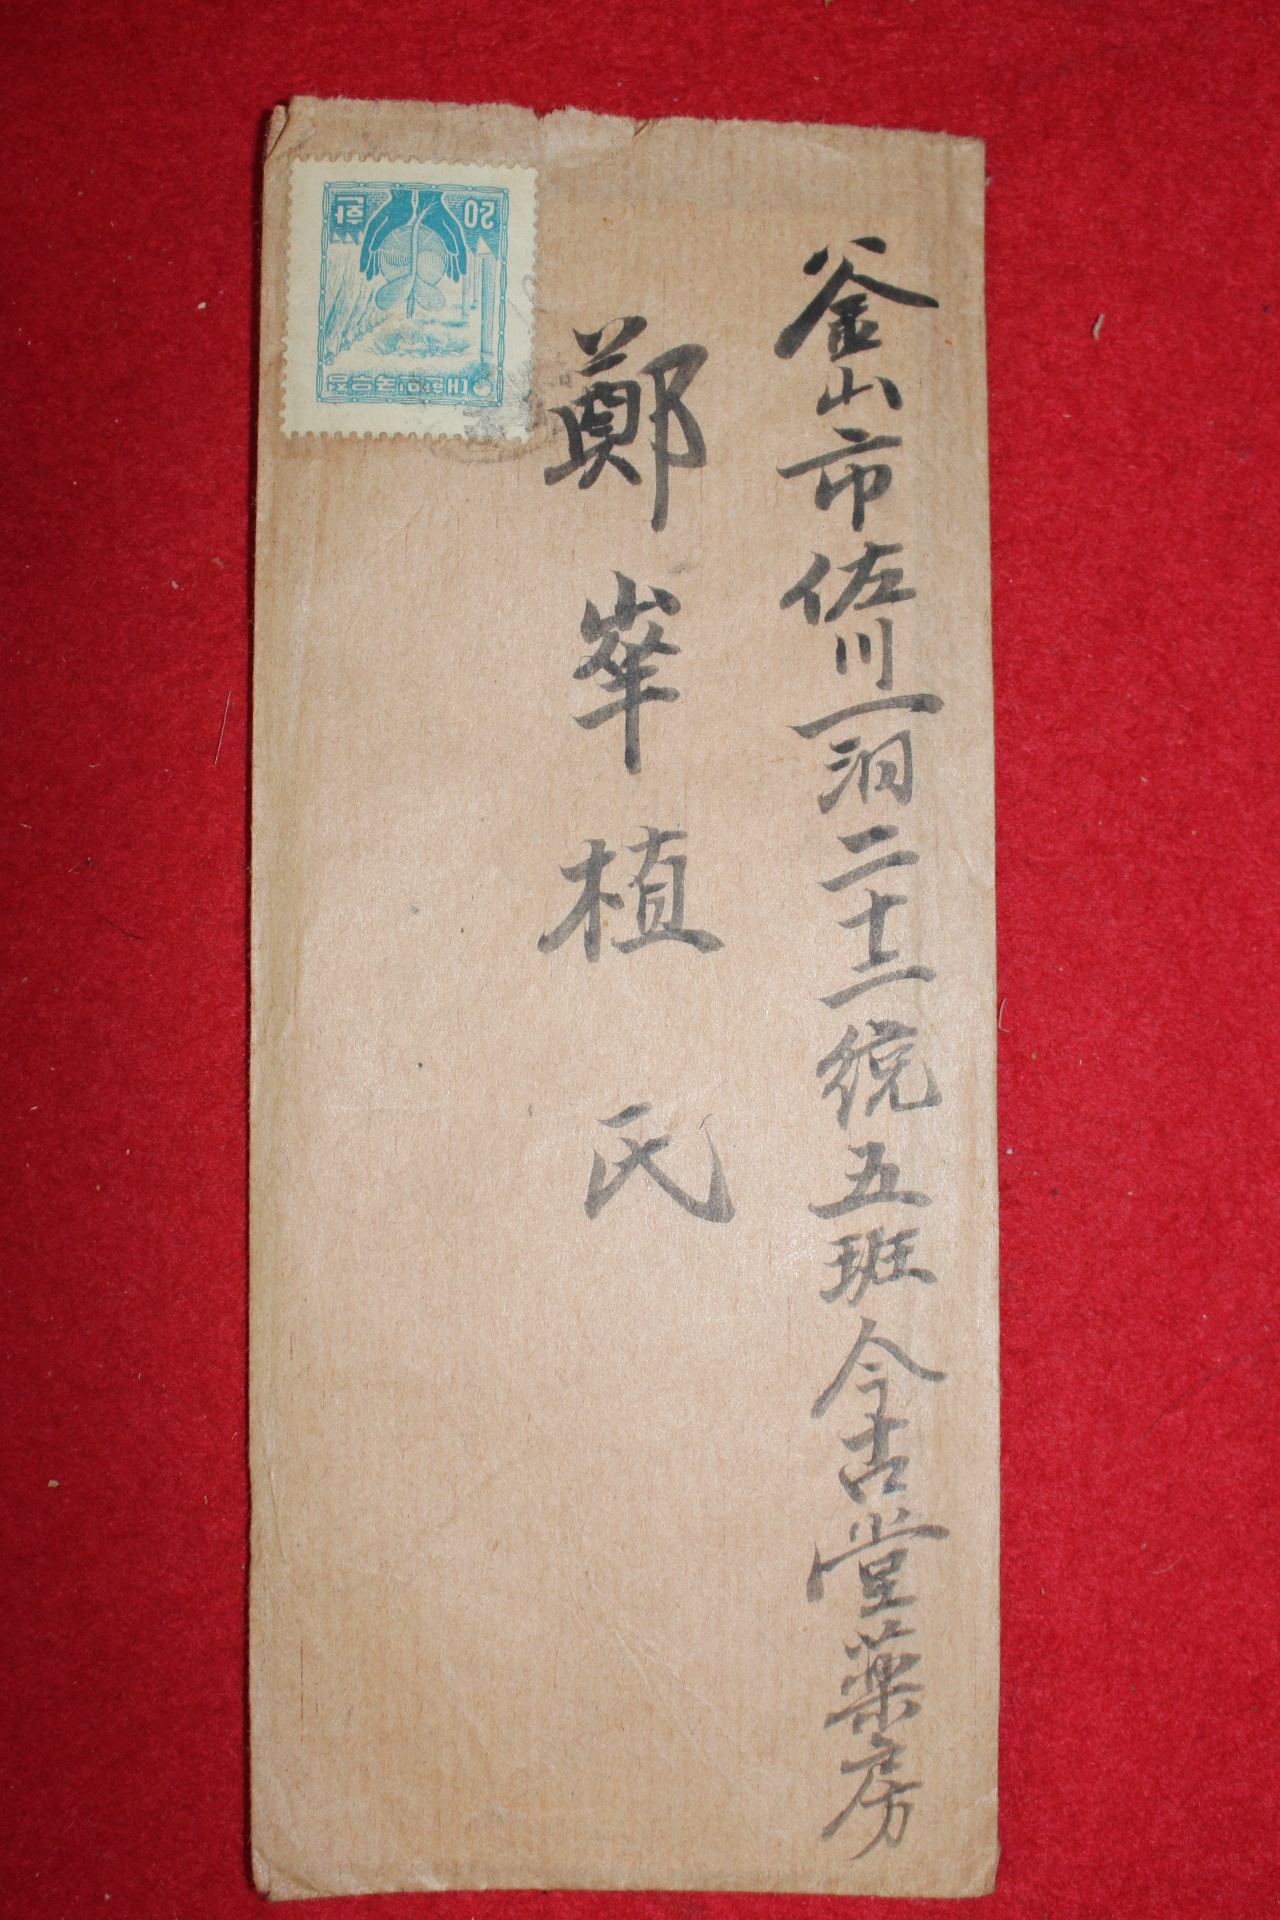 釜山市佐川一洞二十二統五班今古堂薬房
鄭峯植氏
20
한
대한민국우표